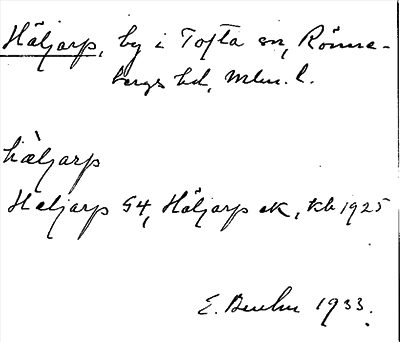 Häljarp, by i Tofta sn, Rönne-
bergs hd, Mlm. l.
hàljarp
Häljarp G4, Häljarp ek, kb 1925
E. 1933.